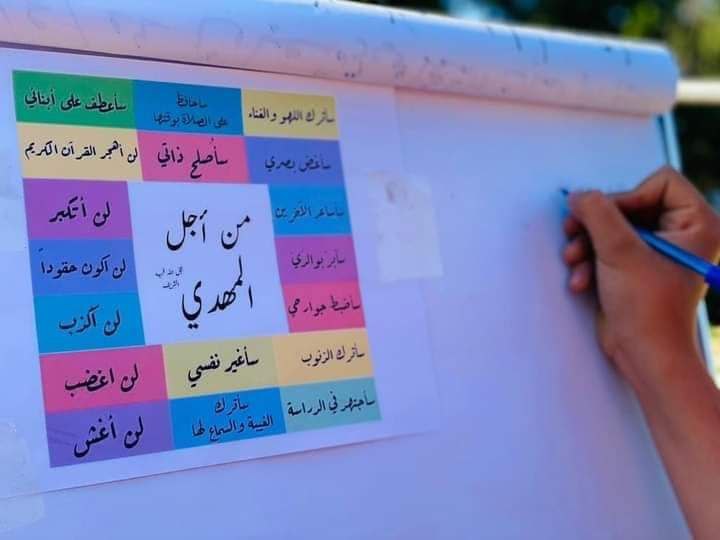 سأترك اللهو والغناء
سأحافظ
على الصلاة بوقتها
سأعطف على أبنائي
سأغض بصري
سأصلح ذاتي
لن أهجر القرآن الكريم
سأساعد الآخرين
لن أتكبر
من أجل
المهدي
سأبر بوالدي
لن اكون حقوداً
سأضبط جوارحي
لن اكذب
سأترك الذنوب
سأغير نفسي
لن اغضب
سأجتهد في الدراسة
سأترك
الغيبة والسماع لها
لن أغش